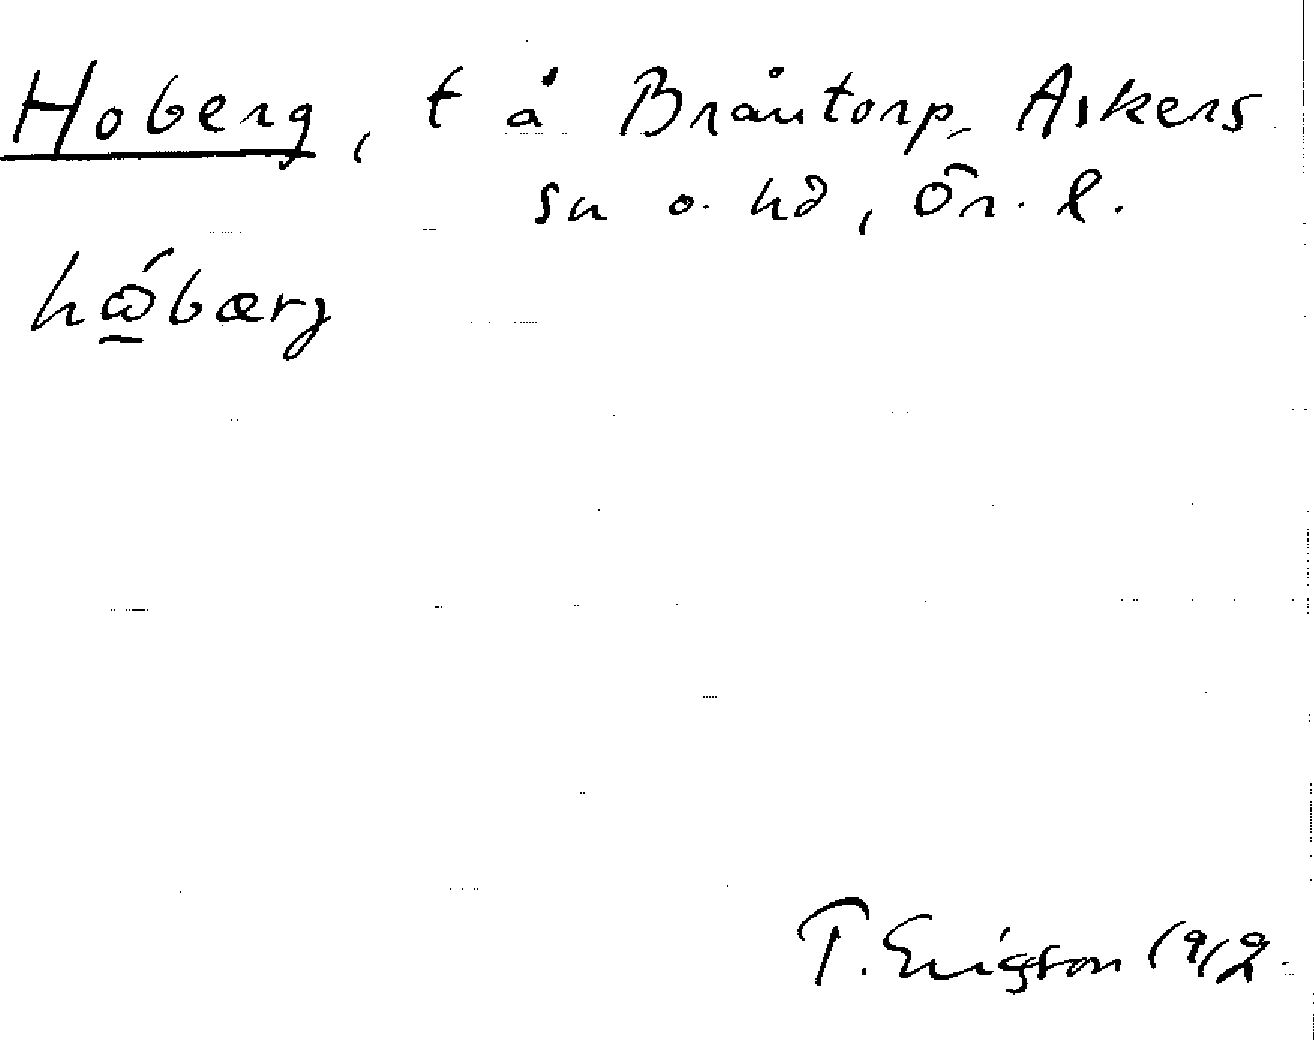 Hoberg, t å Bråntorp, Askers
sn o. hd, Ör. l.
hώ̲bærj
T. Ericsson 1912.